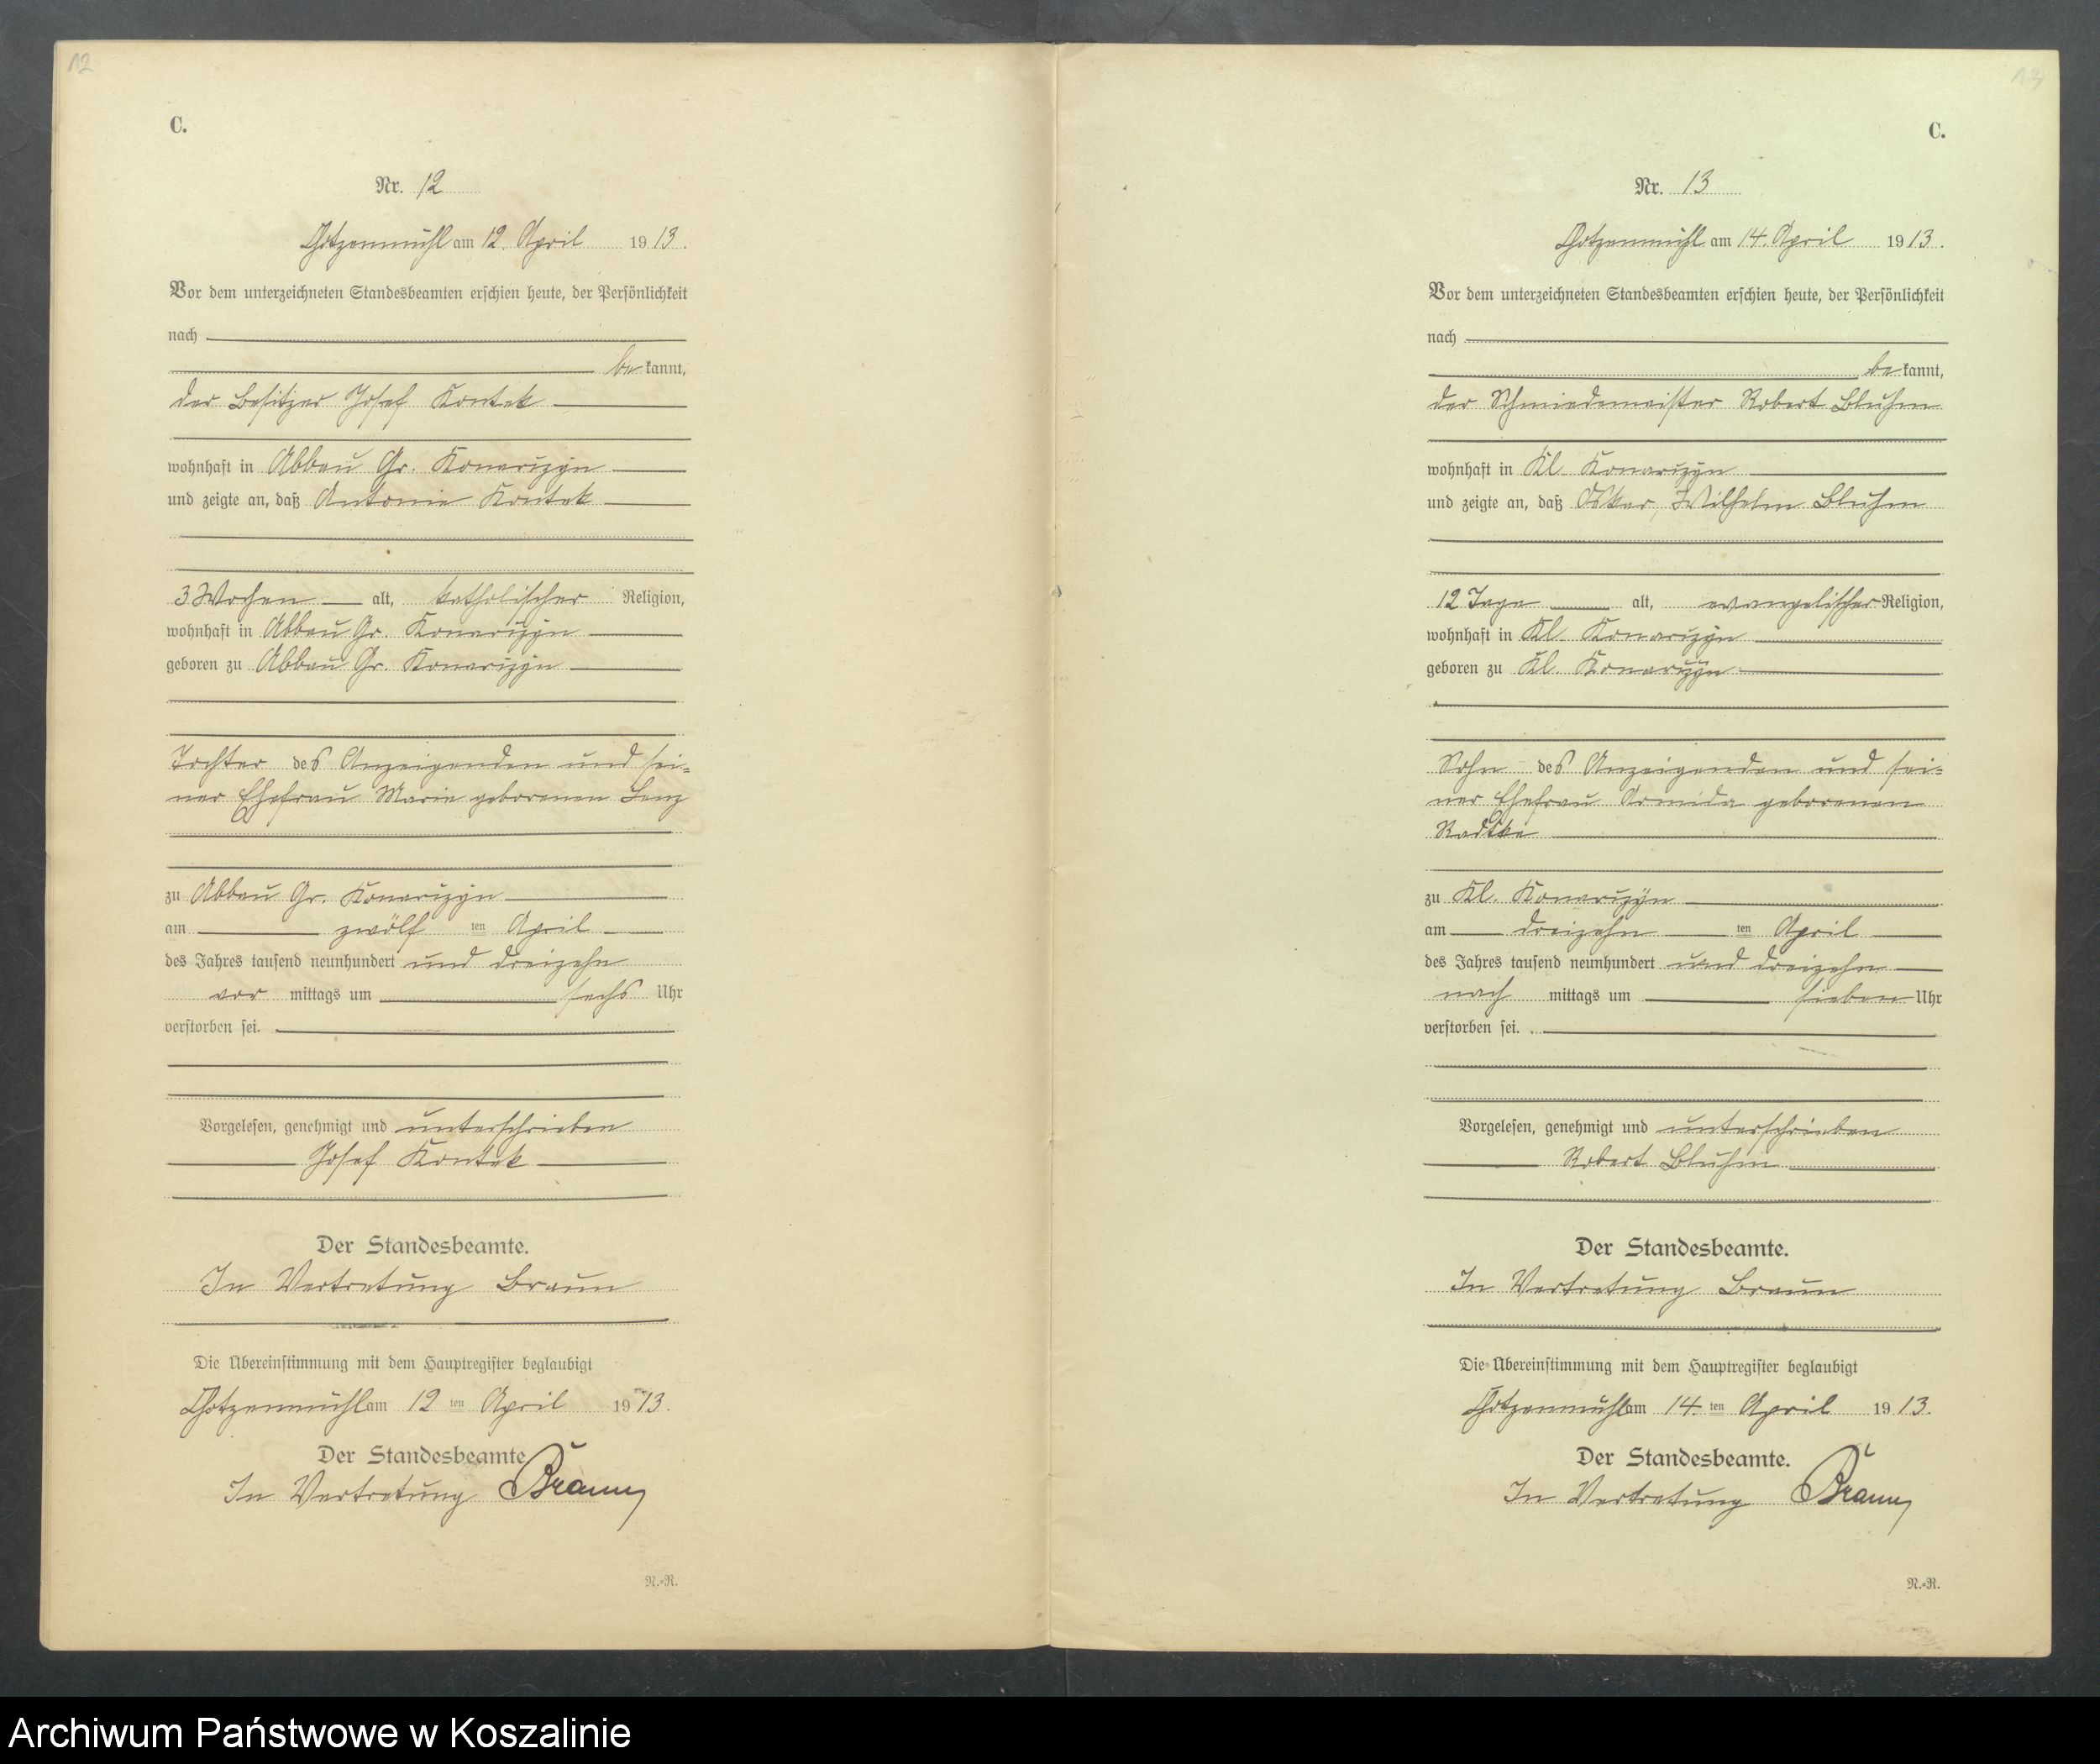 12
C.
Nr. 12
Glotzenmühl am 12. April 1913.
Vor dem unterzeichneten Standesbeamten erschien heute, der Persönlichkeit
nach
be kannt,
der Besitzer Josef Kontek
wohnhaft in Abbau Gr. Konarzyn
und zeigte an, daß Antonie Kontek
3 Wochen alt, katholischer Religion,
wohnhaft in Abbau Gr. Konarzyn
geboren zu Abbau Gr. Konarzyn
Tochter des Anzeigenden und sei=
ner Ehefrau Marie geborenen Lenz
zu Abbau Gr. Konarzyn
am zwölf ten April
des Jahres tausend neunhundert und dreizehn
vor mittags um sechs Uhr
verstorben sei.
Vorgelesen, genehmigt und unterschrieben
Josef Kontek
Der Standesbeamte.
In Vertretung Braun
Die Übereinstimmung mit dem Hauptregister beglaubigt
am 12 ten April 1913.
Der Standesbeamte
In Vertretung Braun
R.=R.
13
C.
Nr. 13
am 14. April 1913.
Vor dem unterzeichneten Standesbeamten erschien heute, der Persönlichkeit
nach
be kannt,
der Schmiedemeister Robert Bluhm
wohnhaft in Kl. Konarzyn
und zeigte an, daß Oskar, Wilhelm Bluhm
12 Tage alt, evangelischer Religion,
wohnhaft in Kl. Konarzyn
geboren zu Kl. Konarzyn
Sohn des Anzeigenden und sei=
ner Ehefrau Armida geborenen
Radtke
zu Kl. Konarzyn
am dreizehn ten April
des Jahres tausend neunhundert und dreizehn
nach mittags um sieben Uhr
verstorben sei.
Vorgelesen, genehmigt und unterschrieben
Robert Bluhm
Der Standesbeamte.
In Vertretung Braun
Die Übereinstimmung mit dem Hauptregister beglaubigt
am 14. ten April 1913.
Der Standesbeamte.
In Vertretung Braun
R.=R.
Archiwum Państwowe w Koszalinie